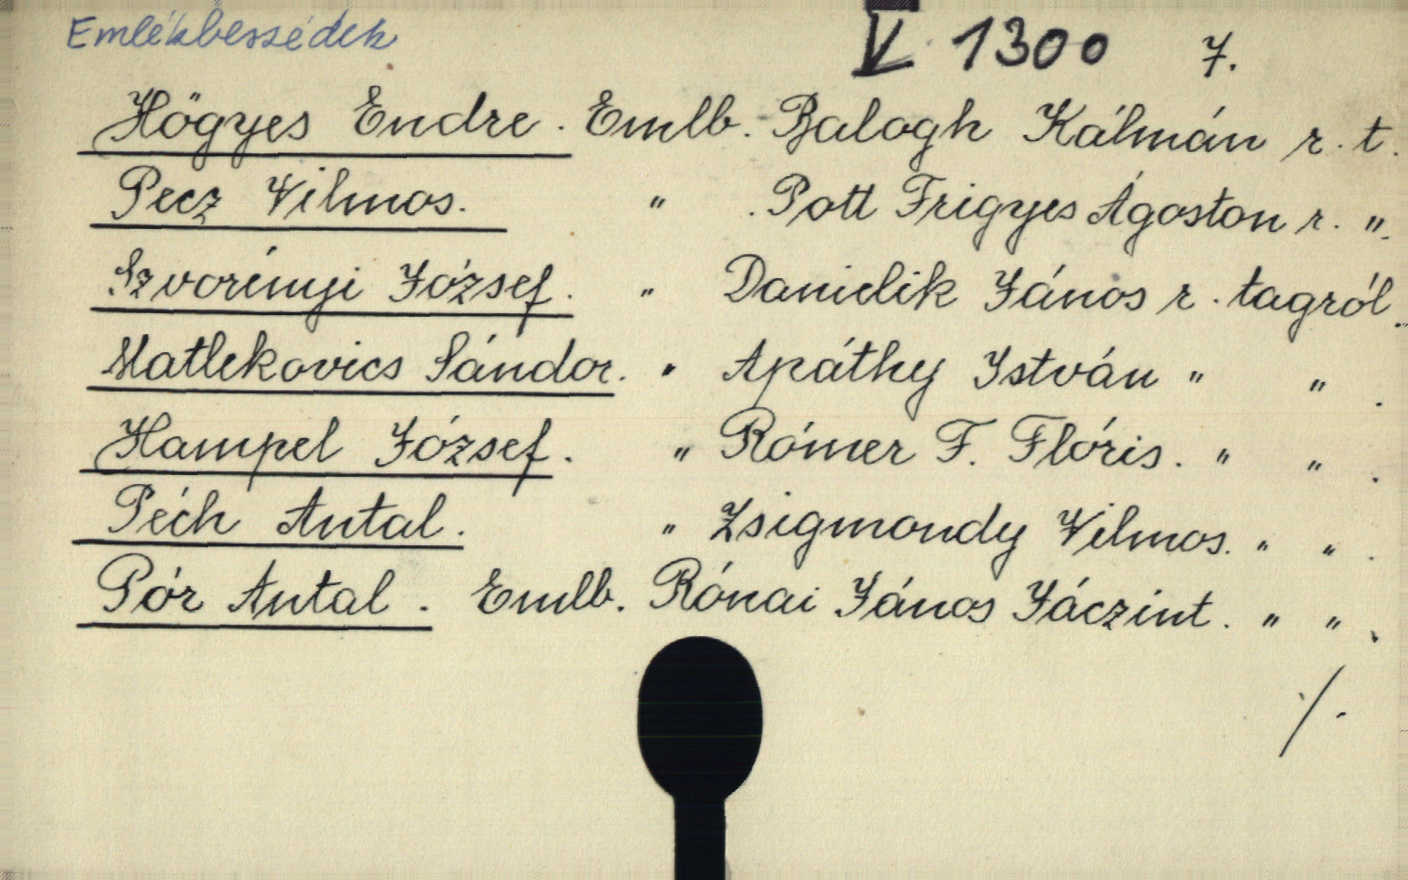 Emlékbeszédek V 1300 7.
Hőgyes Endre. Emlb. Balogh Kálmán r. t.
Pecz Vilmos. " . Pott Frigyes Ágoston r. ".
Szvorényi József. " Danielik János r. tagról.
Matlekovics Sándor. " Apáthy István " " .
Hampel József. " Rómer F. Flóris. " " .
Péch Antal. " Zsigmondy Vilmos. " " .
Pór Antal. Emlb. Rónai János Jáczint. " " .
./.